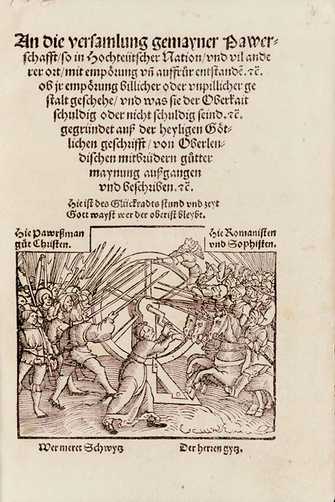 An die versamlung gemayner Pawer-
schafft/so in Hochteütscher Nation/vnd vil ande
rer ort/mit empörung vñ auffrůr entstandẽ. ꝛc.
ob jr empörung billicher oder vnpillicher ge
stalt geschehe/vnd was sie der Oberkait
schuldig oder nicht schuldig seind. ꝛc.
gegründet auß der heyligen Göt-
lichen geschrifft/von Oberlen-
dischen mitbrüdern gůtter
maynung außgangen
vnd beschriben. ꝛc.
Hie ist des Glückradts stund vnd zeyt
Gott wayst wer der oberist bleybt.
Hie Pawrßman
gůt Christen.
Hie Romanisten
vnd Sophisten.
Wer meret Schwytz
Der herren gytz.